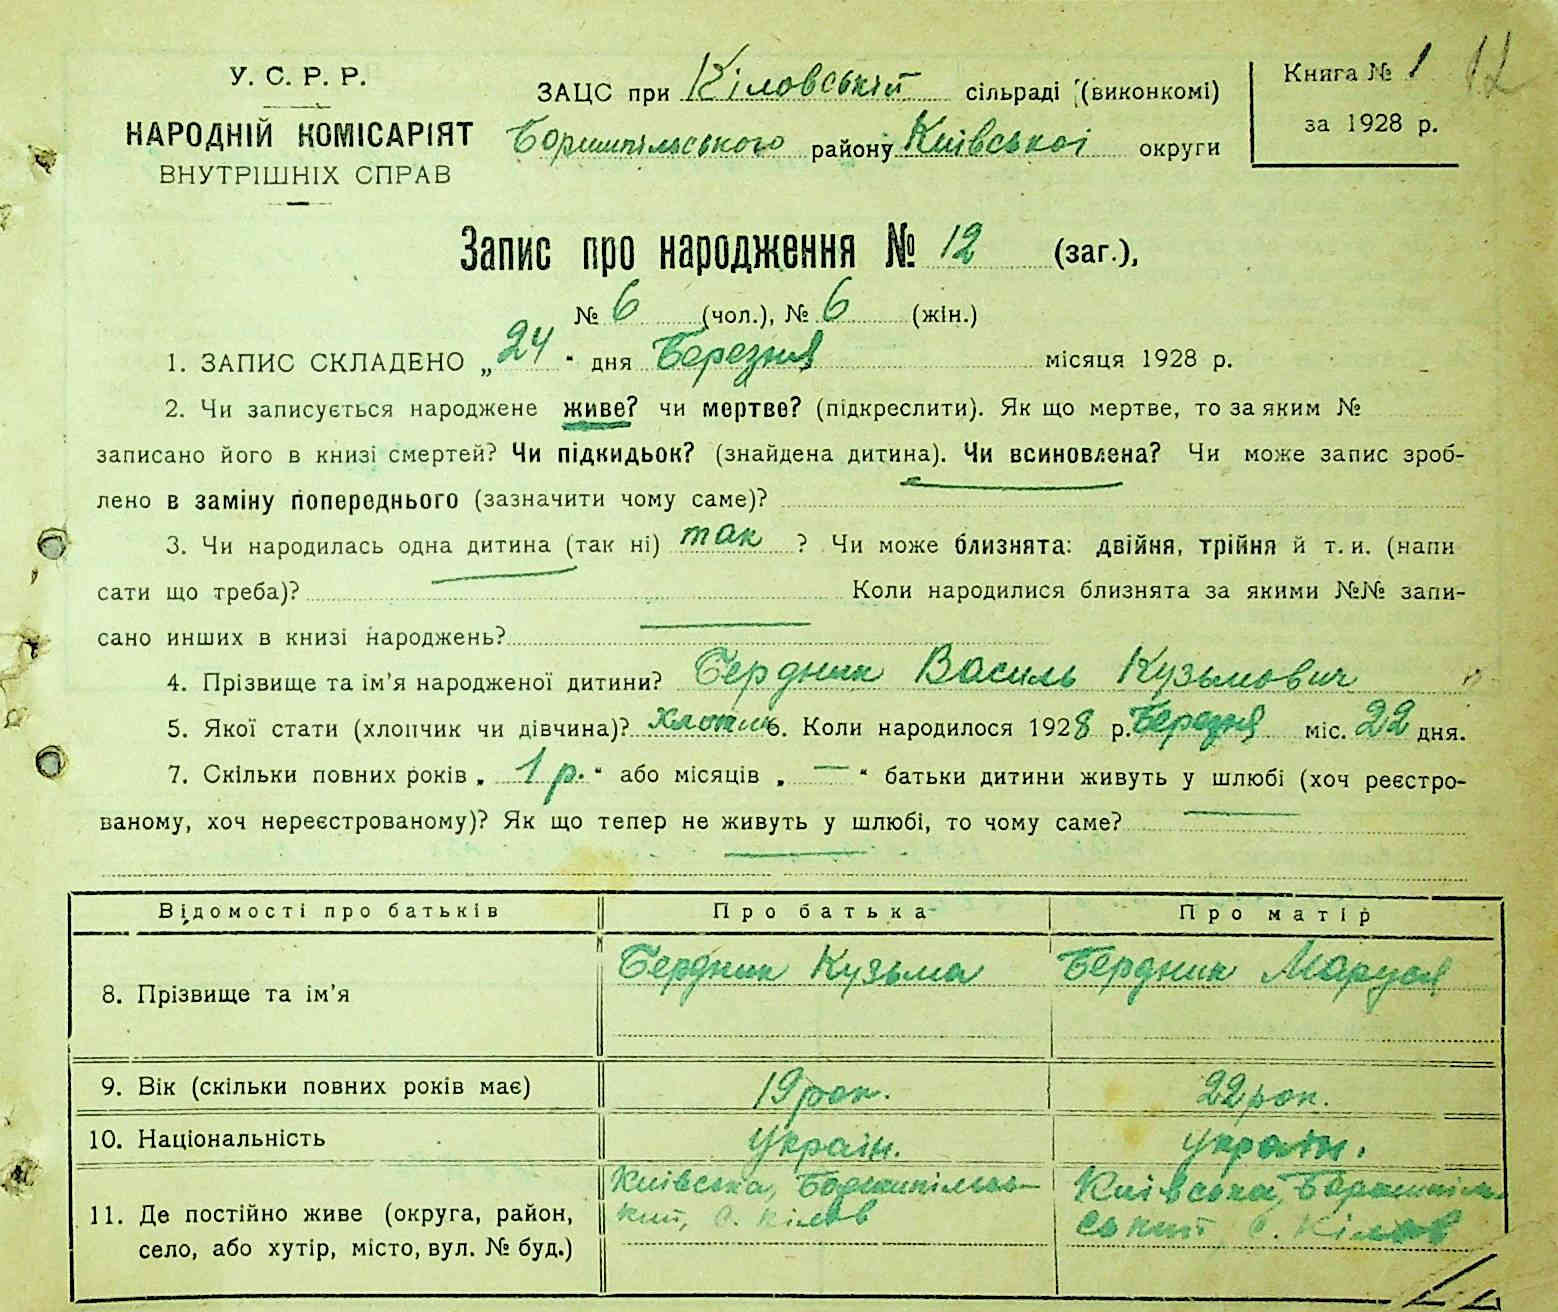 У. С. Р. Р.
НАРОДНІЙ КОМІСАРІЯТ
ВНУТРІШНІХ СПРАВ
ЗАЦС при Кіловській сільраді (виконкомі)
Боришпільського району Київської округи
Книга № 1 12
за 1928 р.
Запис про народження № 12 (заг.),
№ 6 (чол.), № 6 (жін.)
1. ЗАПИС СКЛАДЕНО „24“ дня Березня місяця 1928 р.
2. Чи записується народжене живе? чи мертве? (підкреслити). Як що мертве, то за яким №
записано його в книзі смертей? Чи підкидьок? (знайдена дитина). Чи всиновлена? Чи може запис зроб-
лено в заміну попереднього (зазначити чому саме)?
3. Чи народилась одна дитина (так ні) так ? Чи може близнята: двійня, трійня й т. и. (напи
сати що треба)? Коли народилися близнята за якими №№ запи-
сано инших в книзі народжень?
4. Прізвище та ім’я народженої дитини? Бердник Василь Кузьмович
5. Якої стати (хлопчик чи дівчина)? хлопчик 6. Коли народилося 1928 р. Березня міс. 22 дня.
7. Скільки повних років „ 1 р. “ або місяців „ — “ батьки дитини живуть у шлюбі (хоч реєстро-
ваному, хоч нереєстрованому)? Як що тепер не живуть у шлюбі, то чому саме?
Відомості про батьків Про батька Про матір
8. Прізвище та ім’я Бердник Кузьма Бердник Маруся
9. Вік (скільки повних років має) 19 рок. 22 рок.
10. Національність Україн. Україн.
11. Де постійно живе (округа, район,
село, або хутір, місто, вул. № буд.)
Київська, Боришпільсь-
кий, с. Кілов
Київська, Боришпіль-
ський с. Кілов